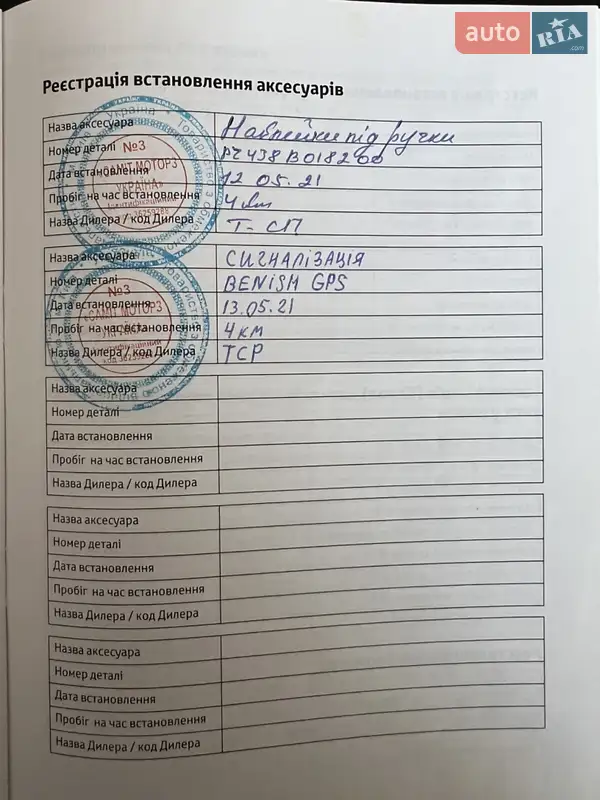 auto RIA .com
Реєстрація встановлення аксесуарів
Назва аксесуара Наклейки під ручки
Номер деталі PZ438B018200
Дата встановлення 12 05.21
Пробіг на час встановлення 4 км
Назва Дилера / код Дилера Т-СП
Назва аксесуара СИГНАЛІЗАЦІЯ
Номер деталі BENISH GPS
Дата встановлення 13.05.21
Пробіг на час встановлення 4 км
Назва Дилера / код Дилера ТСР
№3
САМІТ МОТОРЗ
УКРАЇНА»
Ідентифікаційний
№3
«САМІТ МОТОРЗ
УКРАЇНА»
Назва аксесуара
Номер деталі
Дата встановлення
Пробіг на час встановлення
Назва Дилера / код Дилера
Назва аксесуара
Номер деталі
Дата встановлення
Пробіг на час встановлення
Назва Дилера / код Дилера
Назва аксесуара
Номер деталі
Дата встановлення
Пробіг на час встановлення
Назва Дилера / код Дилера